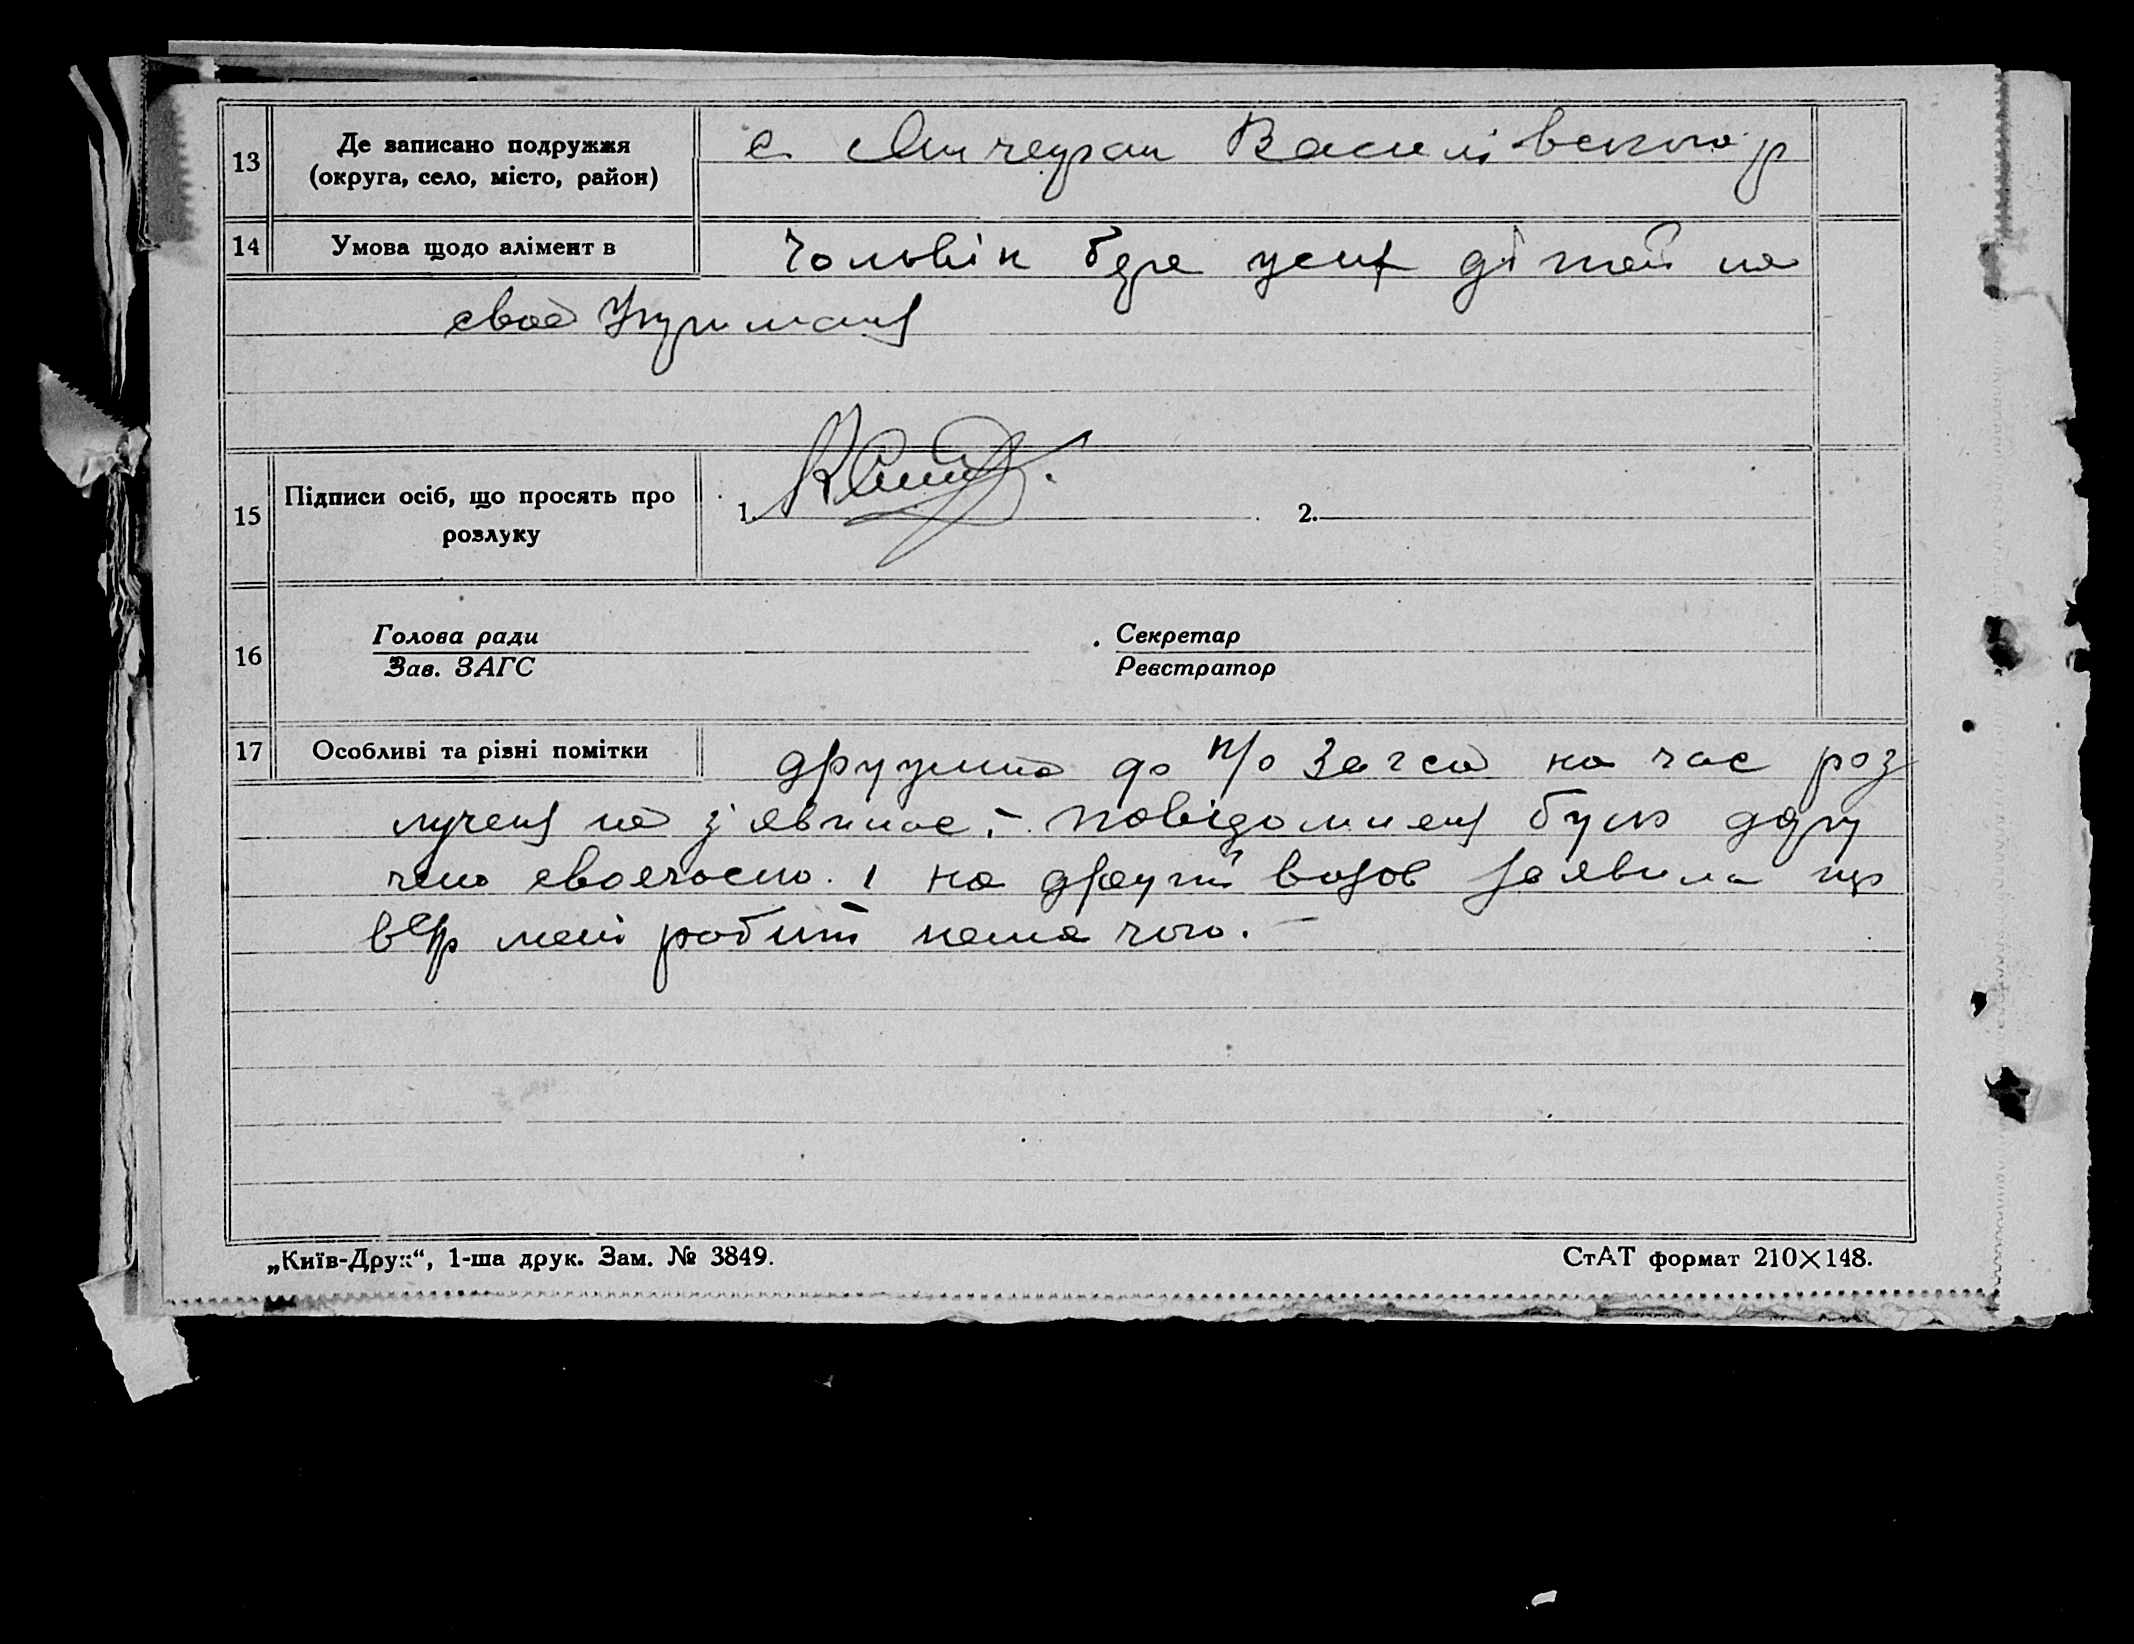 13 Де записано подружжя
(округа, село, місто, район)
с. Василівського р
14 Умова щодо алімент в
Чоловік бере усих дітей на
своє
15 Підписи осіб, що просять про
розлуку
1. 2.
16 Голова ради
Зав. ЗАГС
Секретар
Реєстратор
17 Особливі та різні помітки
дружина до п/о Загса на час роз
лученя не з'явилас. повідомленя було дору
чено своечасно. і на другий визов заявила що
мені робити нема чого.
„Київ-Друк“, 1-ша друк. Зам. № 3849.
СтАТ формат 210×148.